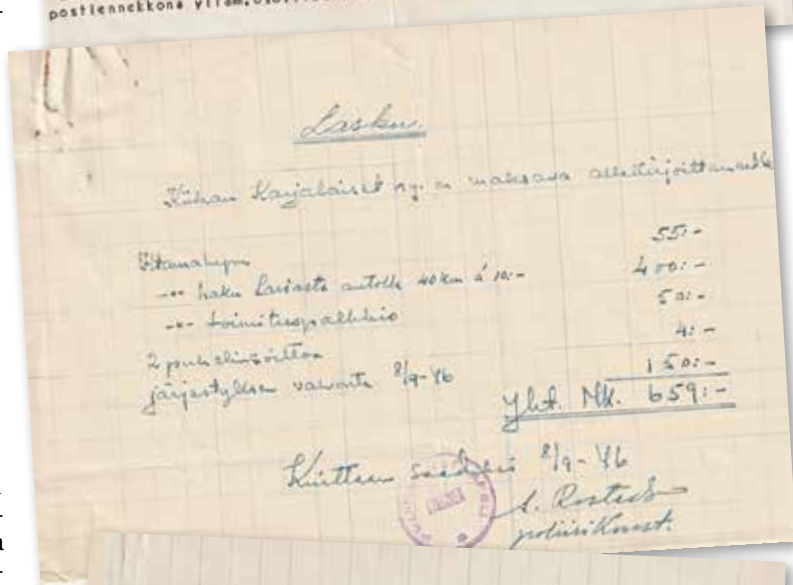 postiennekkona
Lasku.
Kiikan Karjalaiset ry. on maksava allekirjoittaneelle
55:-
-"- haku autolla 40 km á 10:- 400:-
-"- toimituspalkkio 50:-
2 puhelinsoittoa 4:-
järjestyksen valvonta 8/9-46 150:-
Yht. Mk. 659:-
Kuitataan 8/9-46
poliisikonst.
a